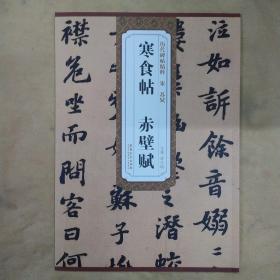 泣如訴餘音嫋
之潛蛟
历代碑帖精粹 宋 苏轼
寒食帖 赤壁赋
蘇子
襟危坐而問客曰何